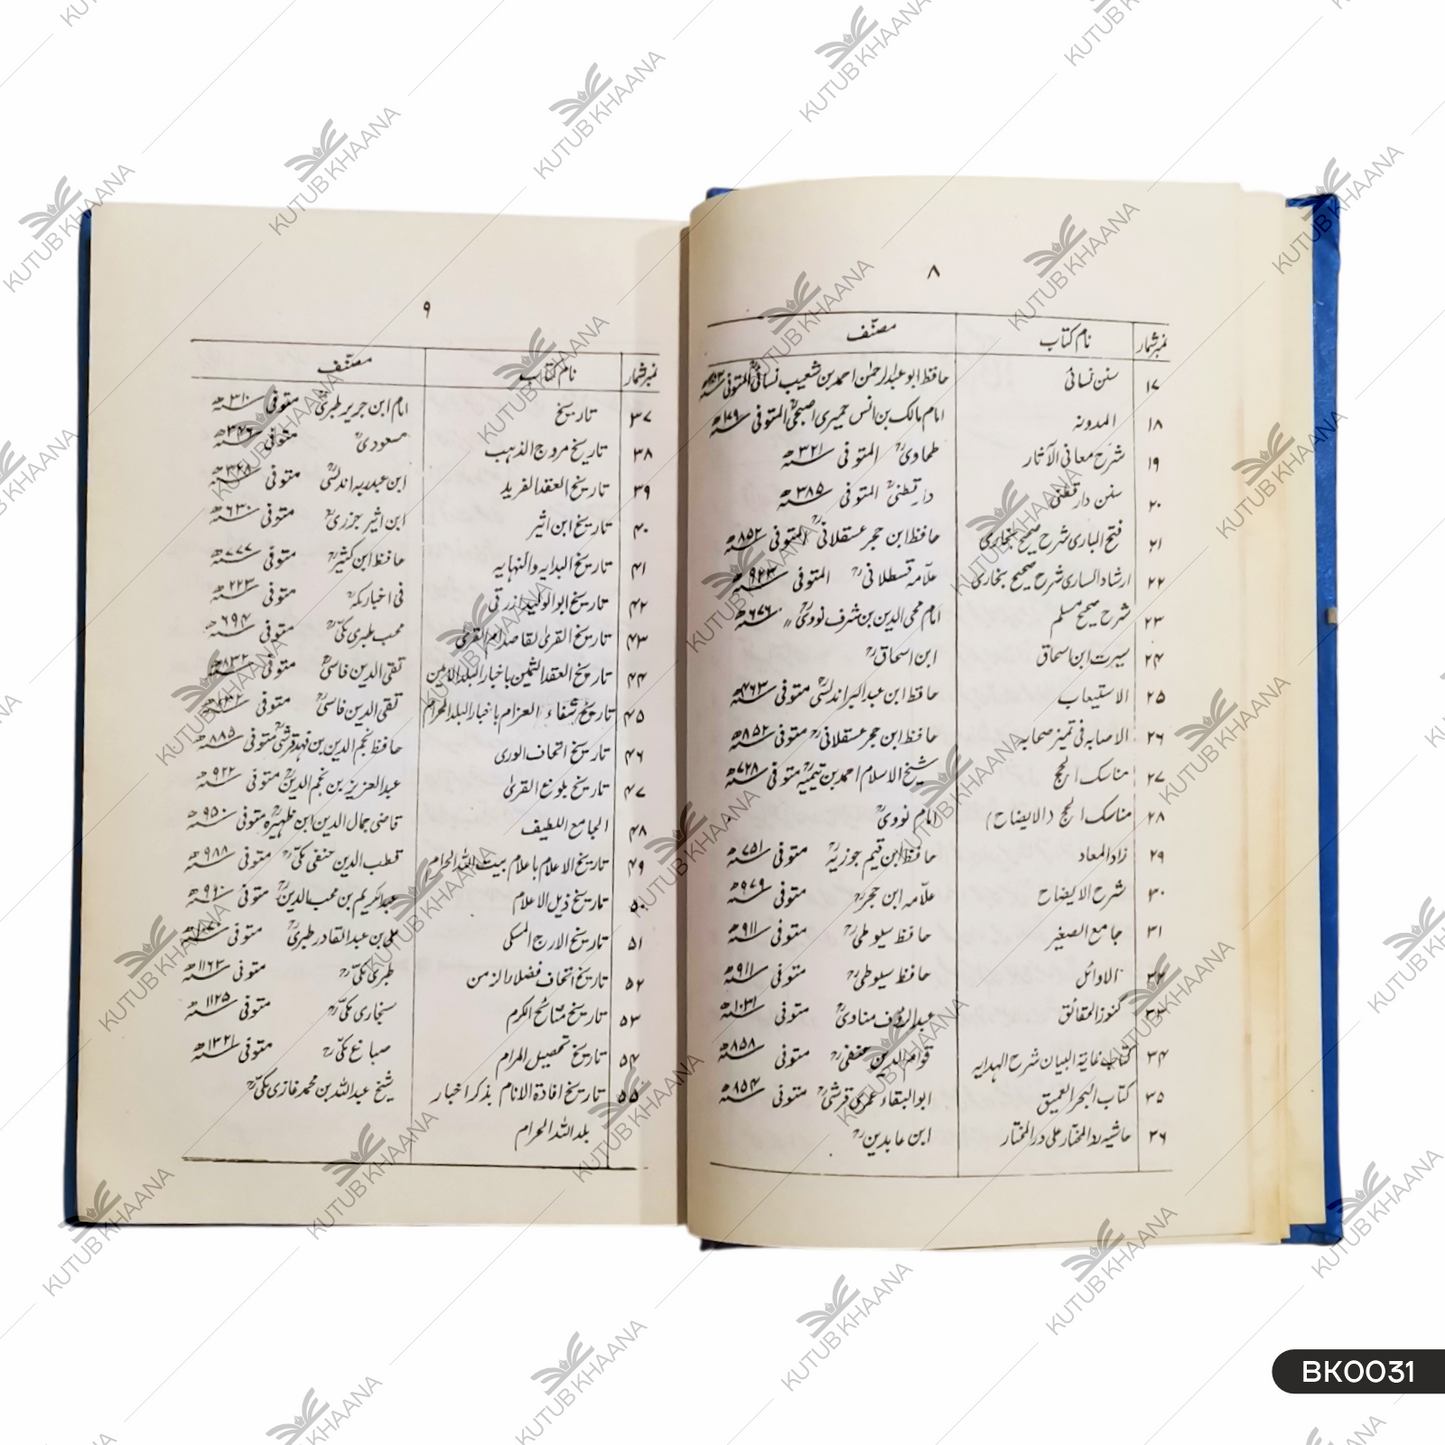 ۸
نمبر شمار نام کتاب مصنّف
۱۷ سنن نسائی حافظ ابو عبدالرحمٰن احمد بن شعیب نسائیؒ المتوفی
۱۸ المدونہ امام مالک بن انس حمیری اصبحیؒ المتوفی ۱۷۹ھ
۱۹ شرح معانی الآثار طحاویؒ المتوفی ۳۲۱ھ
۲۰ سنن دارقطنی دارقطنیؒ المتوفی ۳۸۵ھ
۲۱ فتح الباری شرح صحیح بخاری حافظ ابن حجر عسقلانیؒ المتوفی ۸۵۲ھ
۲۲ ارشاد الساری شرح صحیح بخاری علّامہ قسطلانیؒ المتوفی ۹۲۳ھ
۲۳ شرح صحیح مسلم امام محی الدین بن شرف نوویؒ // ۶۷۶ھ
۲۴ سیرت ابن اسحاق ابن اسحاقؒ
۲۵ الاستیعاب حافظ ابن عبدالبر اندلسیؒ متوفی ۴۶۳ھ
۲۶ الاصابہ فی تمیز صحابہ حافظ ابن حجر عسقلانیؒ متوفی ۸۵۲ھ
۲۷ مناسک الحج شیخ الاسلام احمد بن تیمیہؒ متوفی ۷۲۸ھ
۲۸ مناسک الحج (الایضاح) امام نوویؒ
۲۹ زاد المعاد حافظ ابن قیم جوزیہؒ متوفی ۷۵۱ھ
۳۰ شرح الایضاح علّامہ ابن حجرؒ متوفی ۹۷۹ھ
۳۱ جامع الصغیر حافظ سیوطیؒ متوفی ۹۱۱ھ
۳۲ الاوائل حافظ سیوطیؒ متوفی ۹۱۱ھ
۳۳ کنوز الحقائق عبدالرؤف مناویؒ متوفی ۱۰۳۱ھ
۳۴ کتاب غایۃ البیان شرح الہدایہ قوام الدین حنفیؒ متوفی ۸۵۸ھ
۳۵ کتاب البحر العمیق ابوالبقاء عمری قرشیؒ متوفی ۸۵۴ھ
۳۶ حاشیہ رد المختار علی در المختار ابن عابدینؒ
۹
نمبر شمار نام کتاب مصنّف
۳۷ تاریخ امام ابن جریر طبریؒ متوفی ۳۱۰ھ
۳۸ تاریخ مروج الذہب مسعودیؒ متوفی ۳۴۶ھ
۳۹ تاریخ العقد الفرید ابن عبدربہ اندلسیؒ متوفی ۳۲۸ھ
۴۰ تاریخ ابن اثیر ابن اثیر جزریؒ متوفی ۶۳۰ھ
۴۱ تاریخ البدایہ والنہایہ حافظ ابن کثیرؒ متوفی ۷۷۷ھ
۴۲ تاریخ ابو الولید ازرقی فی اخبار مکہؒ متوفی ۲۲۳ھ
۴۳ تاریخ القریٰ لقاصد ام القریٰ محب طبری مکیؒ متوفی ۶۹۴ھ
۴۴ تاریخ العقد الثمین باخبار البلد الامین تقی الدین فاسیؒ متوفی ۸۳۲ھ
۴۵ تاریخ شفاء العزام باخبار البلد الحرام تقی الدین فاسیؒ متوفی ۸۳۲ھ
۴۶ تاریخ اتحاف الوری حافظ نجم الدین بن فہد قرشیؒ متوفی ۸۸۵ھ
۴۷ تاریخ بلوغ القریٰ عبدالعزیز بن نجم الدینؒ متوفی ۹۲۲ھ
۴۸ الجامع اللطیف قاضی جمال الدین ابن ظہیرہؒ متوفی ۹۵۰ھ
۴۹ تاریخ الاعلام باعلام بیت اللہ الحرام قطب الدین حنفی مکیؒ متوفی ۹۸۸ھ
۵۰ تاریخ ذیل الاعلام عبدالکریم بن محب الدینؒ متوفی
۵۱ تاریخ الارج المسکی علی بن عبدالقادر طبریؒ متوفی
۵۲ تاریخ اتحاف فضلاء الزمن طبری مکیؒ متوفی ۱۱۶۳ھ
۵۳ تاریخ منائح الکرم سنجاری مکیؒ متوفی ۱۱۲۵ھ
۵۴ تاریخ تحصیل المرام صباغ مکیؒ متوفی ۱۳۲۱ھ
۵۵ تاریخ افادۃ الانام بذکر اخبار شیخ عبداللہ بن محمد غازی مکیؒ
بلد اللہ الحرام
BK0031